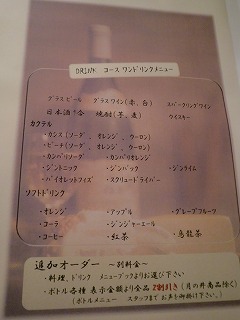 DRINK コース ワンドリンクメニュー
グラスビール グラスワイン(赤、白) スパークリングワイン
日本酒1合 焼酎(芋、麦) ウイスキー
カクテル
・カシス(ソーダ、オレンジ、ウーロン)
・ピーチ(ソーダ、オレンジ、ウーロン)
・カンパリソーダ ・カンパリオレンジ
・ジントニック ・ジンバック ・ジンライム
・バイオレットフィズ ・スクリュードライバー
ソフトドリンク
・オレンジ ・アップル ・グレープフルーツ
・コーラ ・ジンジャーエール
・コーヒー ・紅茶 ・烏龍茶
追加オーダー ～別料金～
・料理、ドリンク メニューブックよりお選び下さい
・ボトル各種 表示金額より全品2割引き(月の井商品除く)
(ボトルメニュー スタッフまでお声を御掛け下さい)